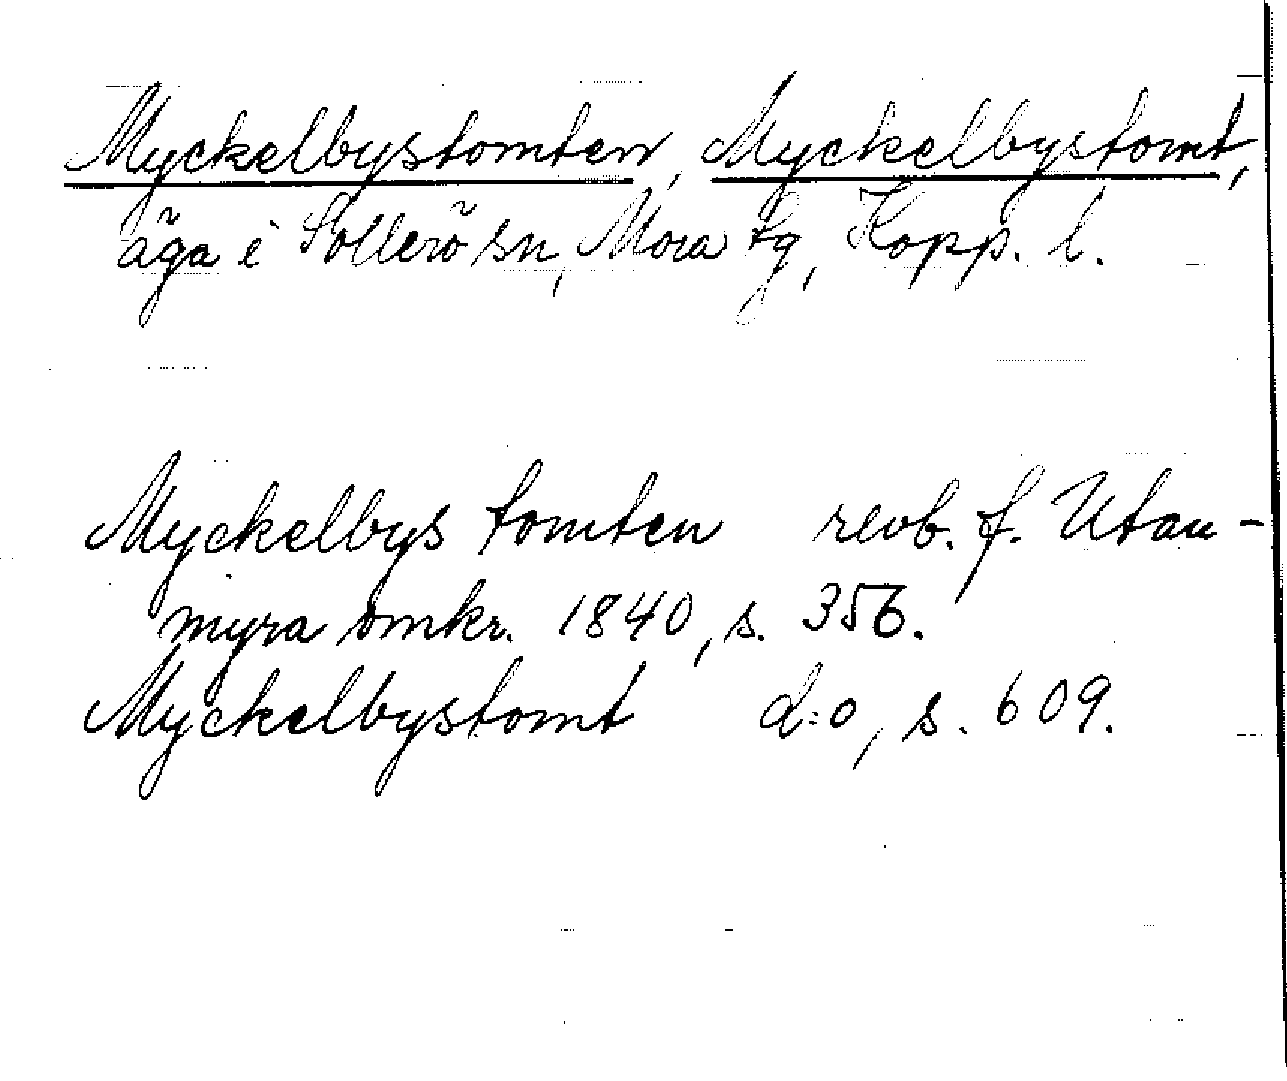 Myckelbystomten, Myckelbystomt,
äga i Sollerö sn, Mora tg, Kopp. l.
Myckelbys tomten revb. f. Utan-
myra omkr. 1840, s. 356.
Myckelbystomt d:o, s. 609.